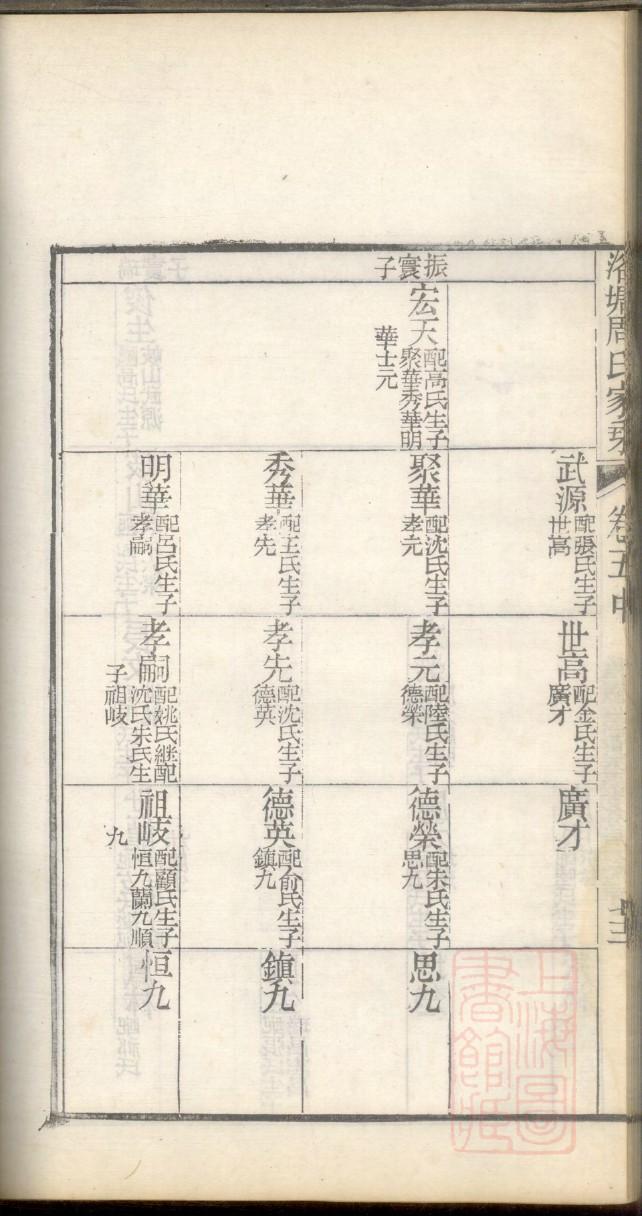 洛塘周氏家乘
卷五中
振寰子
宏天
配高氏生子
聚華秀華明
華士元
武源
配張氏生子
世高
聚華
配沈氏生子
孝元
秀華
配王氏生子
孝先
明華
配呂氏生子
孝嗣
世高
配金氏生子
廣才
孝元
配陸氏生子
德榮
孝先
配沈氏生子
德英
孝嗣
配姚氏継配
沈氏朱氏生
子祖岐
廣才
德榮
配朱氏生子
思九
德英
配俞氏生子
鎮九
祖岐
配顧氏生子
恒九蘭九順
九
思九
鎮九
恒九
上海圖
書館藏